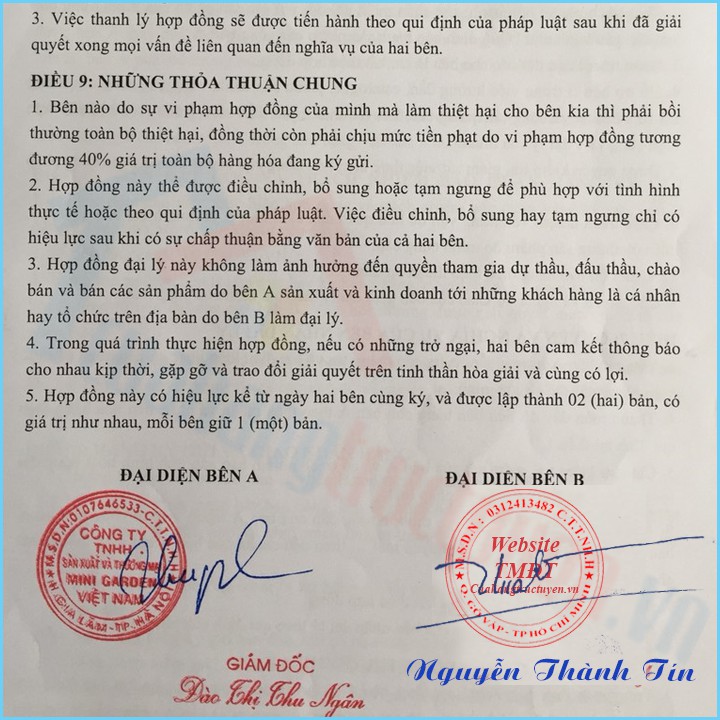 3. Việc thanh lý hợp đồng sẽ được tiến hành theo qui định của pháp luật sau khi đã giải
quyết xong mọi vấn đề liên quan đến nghĩa vụ của hai bên.
ĐIỀU 9: NHỮNG THỎA THUẬN CHUNG
1. Bên nào do sự vi phạm hợp đồng của mình mà làm thiệt hại cho bên kia thì phải bồi
thường toàn bộ thiệt hại, đồng thời còn phải chịu mức tiền phạt do vi phạm hợp đồng tương
đương 40% giá trị toàn bộ hàng hóa đang ký gửi.
2. Hợp đồng này thể được điều chỉnh, bổ sung hoặc tạm ngưng để phù hợp với tình hình
thực tế hoặc theo qui định của pháp luật. Việc điều chỉnh, bổ sung hay tạm ngưng chỉ có
hiệu lực sau khi có sự chấp thuận bằng văn bản của cả hai bên.
3. Hợp đồng đại lý này không làm ảnh hưởng đến quyền tham gia dự thầu, đấu thầu, chào
bán và bán các sản phẩm do bên A sản xuất và kinh doanh tới những khách hàng là cá nhân
hay tổ chức trên địa bàn do bên B làm đại lý.
4. Trong quá trình thực hiện hợp đồng, nếu có những trở ngại, hai bên cam kết thông báo
cho nhau kịp thời, gặp gỡ và trao đổi giải quyết trên tinh thần hòa giải và cùng có lợi.
5. Hợp đồng này có hiệu lực kể từ ngày hai bên cùng ký, và được lập thành 02 (hai) bản, có
giá trị như nhau, mỗi bên giữ 1 (một) bản.
ĐẠI DIỆN BÊN A
ĐẠI DIỆN BÊN B
M.S.D.N:0107646533-C.T.T.N.H.H
CÔNG TY
TNHH
SẢN XUẤT VÀ THƯƠNG MẠI
MINI GARDEN
VIỆT NAM
GIA LÂM-TP.HÀ NỘI
M.S.D.N: 0312413482 C.T.T.NH.H
Website
TMĐT
Q. GÒ VẤP - TP HỒ CHÍ MINH
GIÁM ĐỐC
Đào Thị Thu Ngân
Nguyễn Thành Tín